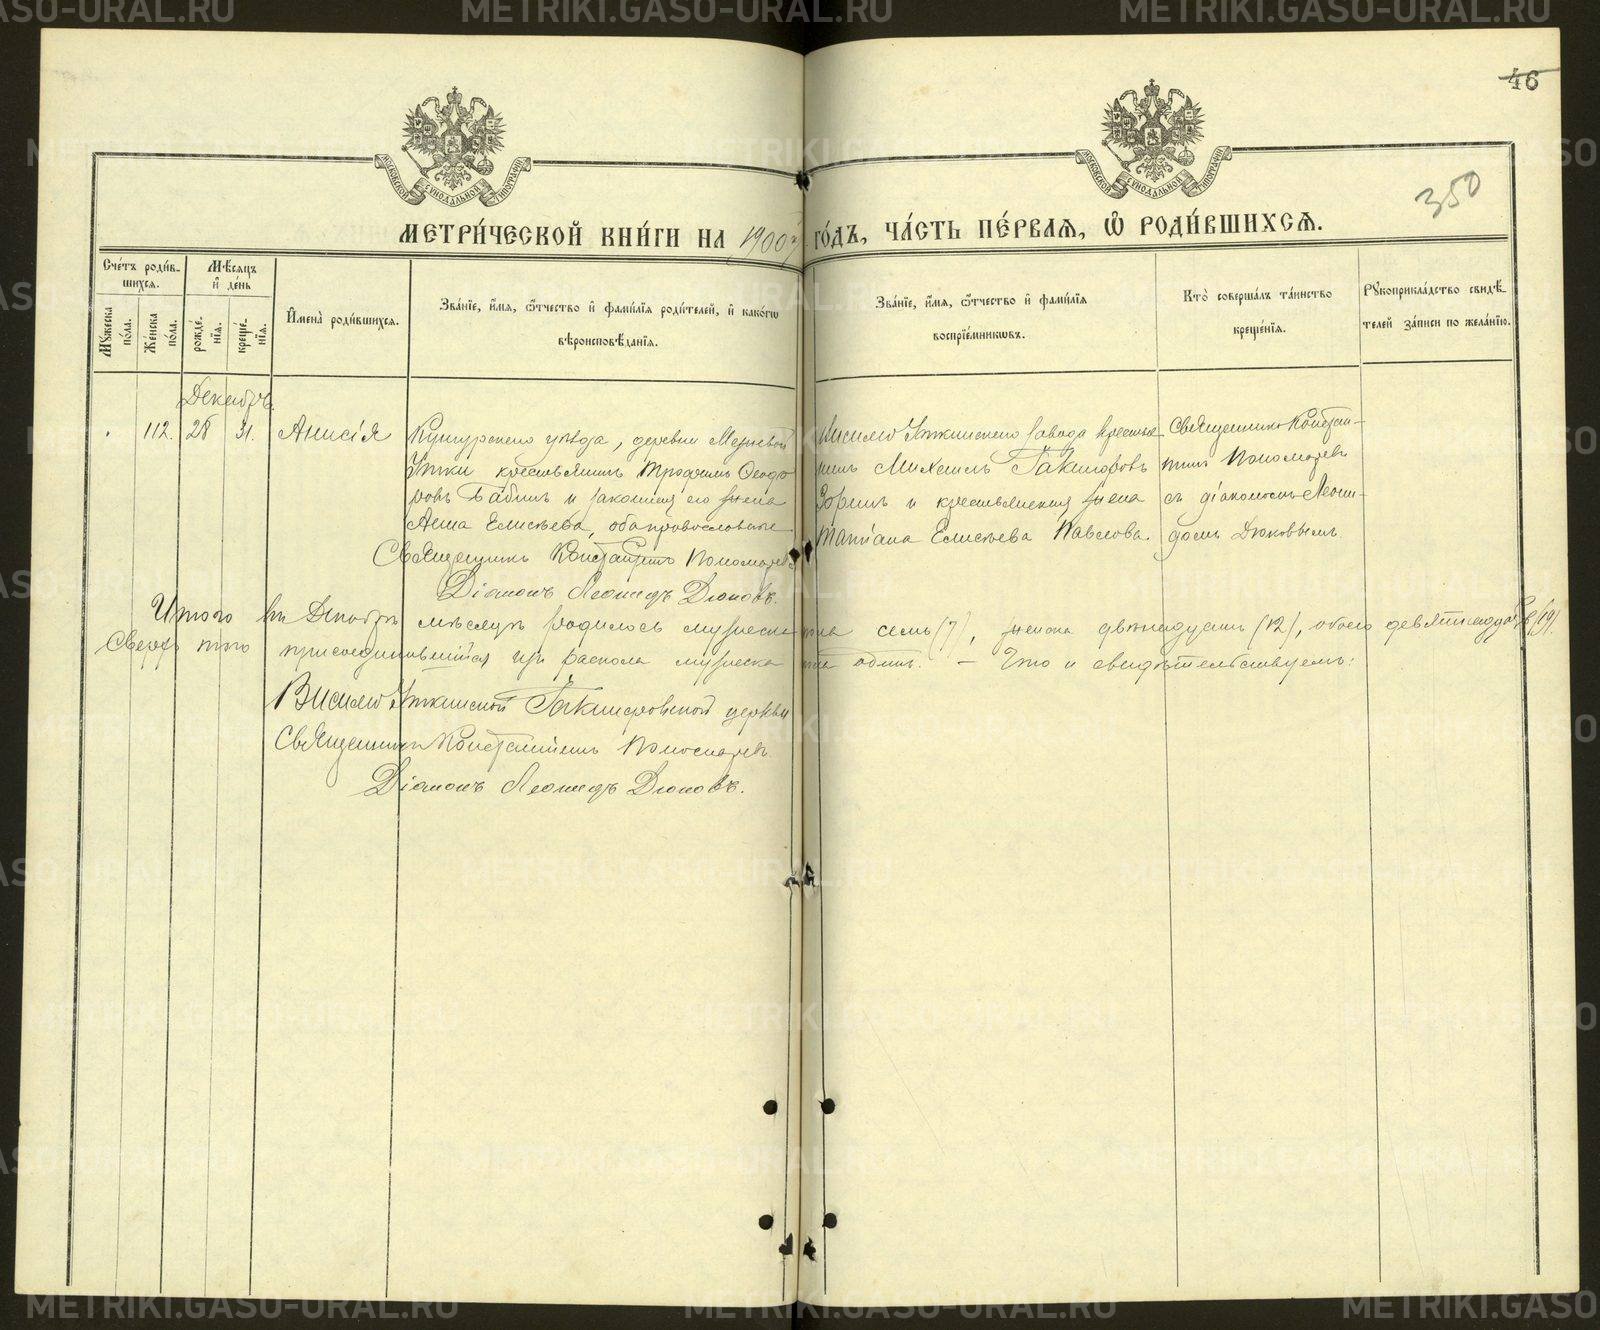 46
350
МОСКОВСКОЙ СѴНОДАЛЬНОЙ ТИПОГРАФІИ
МОСКОВСКОЙ СѴНОДАЛЬНОЙ ТИПОГРАФІИ
МЕТРИ́ЧЕСКОЙ КНИ́ГИ НА 1900й ГО́ДЪ, ЧА́СТЬ ПЕ́РВАѦ, Ѽ РОДИ́ВШИХСѦ.
Сче́тъ роди́в-
шихсѧ.
Мѣ́сѧцъ
и҆ де́нь
Мꙋ́жеска
по́ла.
Же́нска
по́ла.
рожде́-
нїѧ.
креще́-
нїѧ.
И҆мена̀ роди́вшихсѧ.
Зва́нїе, и҆́мѧ, ѻ҆́тчество и҆ фами́лїѧ роди́телей, и҆ како́гѡ
вѣроисповѣ́данїѧ.
Зва́нїе, и҆́мѧ, ѻ҆́тчество и҆ фами́лїѧ
воспрїе́мникѡвъ.
Кто̀ соверша́лъ та́инство
креще́нїѧ.
Рꙋкоприкла́дство свидѣ́-
телей за́писи по жела́нїю.
Декабрь
112. 28 31. Анисія
Кунгурскаго уѣзда, деревни
Утки крестьянинъ Трофимъ Ѳеодо
ровъ Бабинъ и законная его жена
Анна Елисѣева, оба православные
Священникъ Константинъ Пономаревъ
Діаконъ Леонидъ Дюковъ.
Висимо Уткинскаго завода крестья
нинъ Михаилъ
и крестьянская жена
Татіана Елисѣева Павлова.
Священникъ Констан-
тинъ Пономаревъ
съ діакономъ Леони-
домъ Дюковымъ.
Итого въ Декабрѣ мѣсяцѣ родилось мужеска пола семь (7), женска двѣнадцать (12), обоего девятнадцать (19).
Сверхъ того присоединившійся изъ раскола мужеска пола одинъ. – Что и свидѣтельствуемъ:
Висимо Уткинской церкви
Священникъ Константинъ Пономаревъ
Діаконъ Леонидъ Дюковъ.
METRIKI.GASO-URAL.RU